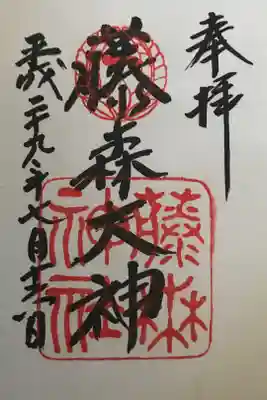 奉拝
藤森大神
藤森
神社
平成二十九年七月十六日